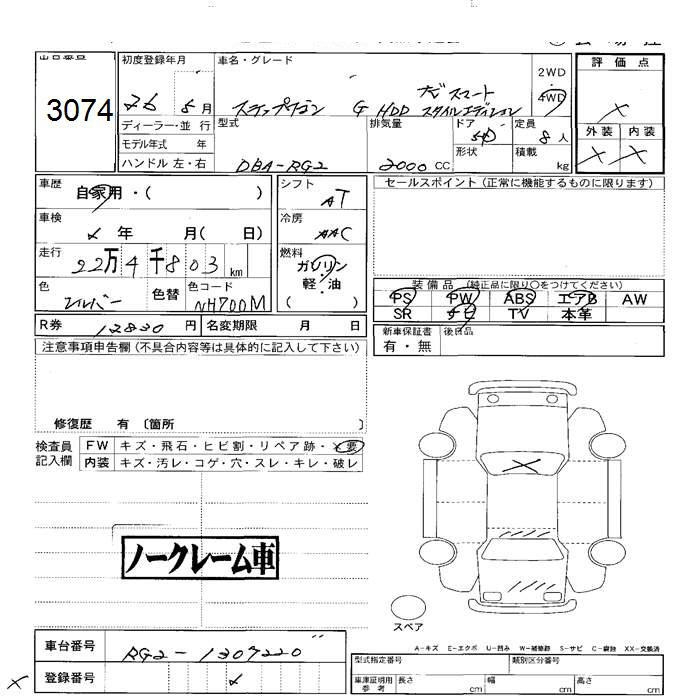 初度登録年月
車名・グレード
評価点
3074
26 8月
ステップワゴン G HDD ナビスマート スタイルエディション
2WD
4WD
ディーラー・並 行
モデル年式 年
ハンドル 左・右
型式
DBA-RG2
排気量
2000 CC
ドア
5D
形状
定員
8人
積載
kg
外装 内装
車歴
自家用・( )
シフト
AT
セールスポイント (正常に機能するものに限ります)
車検
年 月( 日)
冷房
AAC
走行
22万4千803 km
燃料
ガソリン
軽・油
( )
色
シルバー
色替
色コード
NH700M
装備品 (純正品に限り○をつけてください)
PS PW ABS エアB AW
SR ナビ TV 本革
R券 12830 円 名変期限 月 日
新車保証書
有・無
後日品
注意事項申告欄 (不具合内容等は具体的に記入して下さい)
修復歴 有 〔箇所 〕
検査員
記入欄
FW キズ・飛石・ヒビ割・リペア跡・×要
内装 キズ・汚レ・コゲ・穴・スレ・キレ・破レ
ノークレーム車
スペア
車台番号
RG2-1307220
登録番号
A-キズ E-エクボ U-凹み W-補修跡 S-サビ C-腐蝕 XX-交換済
型式指定番号
類別区分番号
車庫証明用
参考
長さ cm 幅 cm 高さ cm